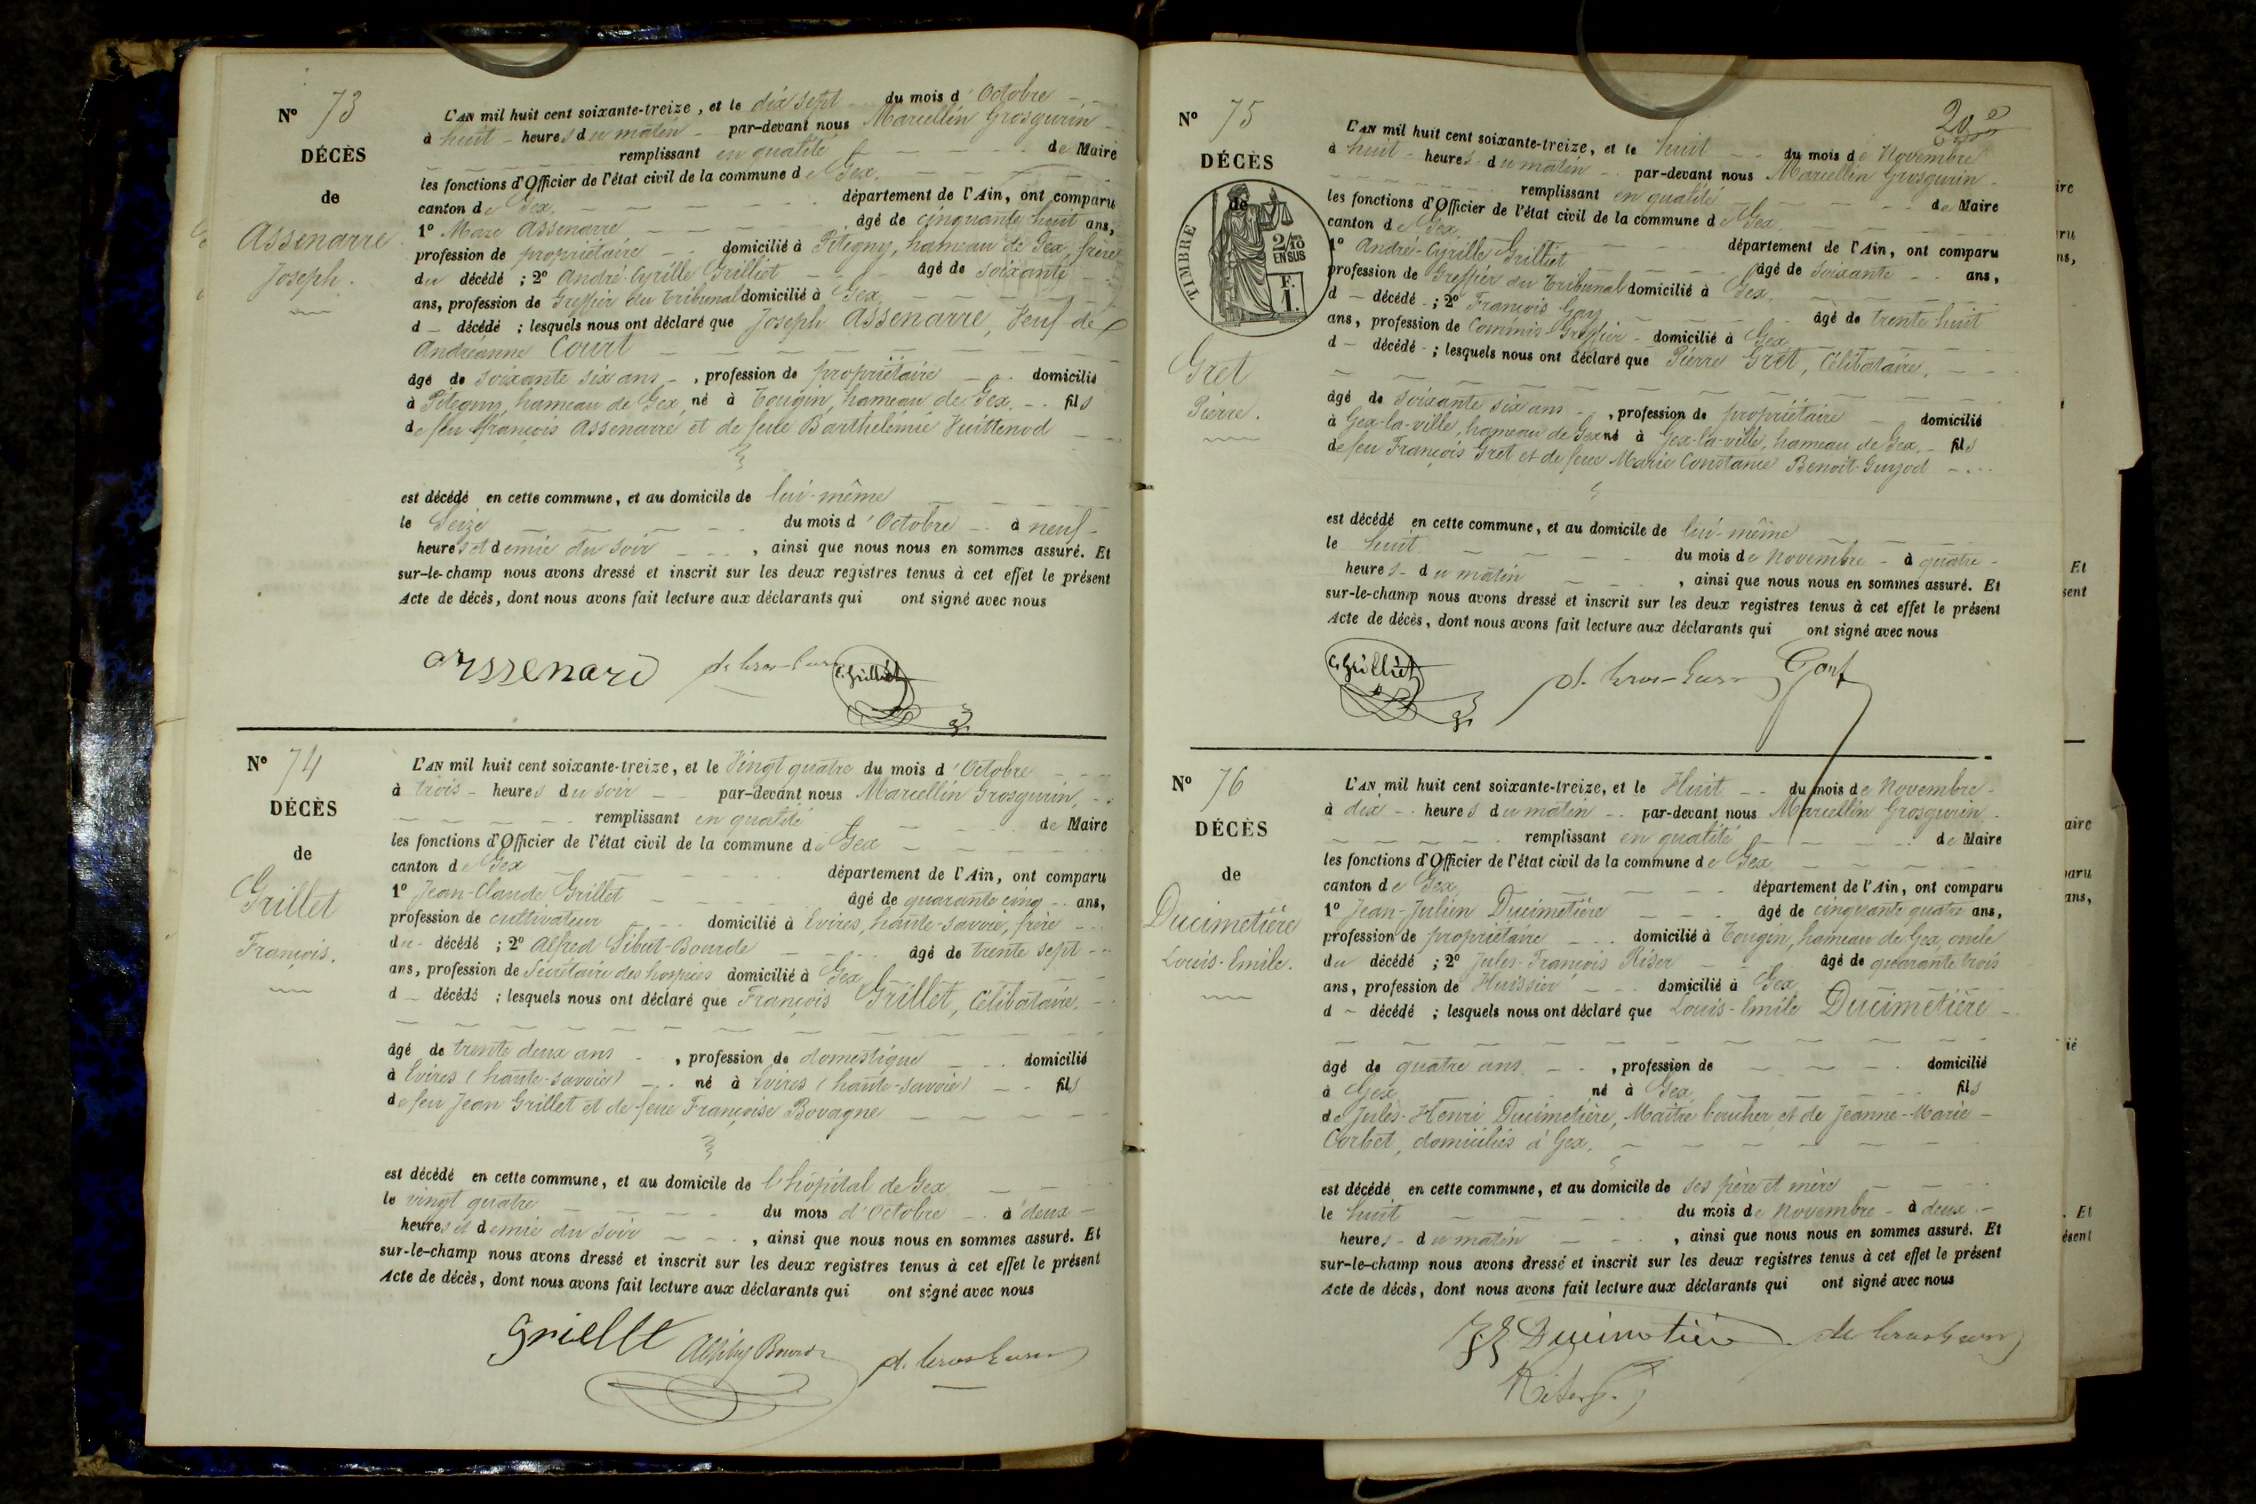 Nº 73
DÉCÈS
de
Assenarre
Joseph.
L'AN mil huit cent soixante-treize, et le dix sept du mois d'Octobre
à huit heures du matin par-devant nous Marcellin Grosgurin
remplissant en qualité de Maire
les fonctions d'Officier de l'état civil de la commune de Gex.
canton de Gex. département de l'Ain, ont comparu
1º Marc Assenarre âgé de cinquante huit ans,
profession de propriétaire domicilié à Pitegny, hameau de Gex, frère
du décédé ; 2º André-Cyrille Grilliet âgé de soixante
ans, profession de Greffier du Tribunal domicilié à Gex
d décédé ; lesquels nous ont déclaré que Joseph Assenarre, Veuf de
Andréanne Court
âgé de soixante six ans, profession de propriétaire domicilié
à Pitegny, hameau de Gex, né à Tougin, hameau de Gex. fils
de feu François Assenarre et de feue Barthélémie Vuittenod
est décédé en cette commune, et au domicile de lui-même
le Seize du mois d'Octobre à neuf
heures et demie du soir, ainsi que nous nous en sommes assuré. Et
sur-le-champ nous avons dressé et inscrit sur les deux registres tenus à cet effet le présent
Acte de décès, dont nous avons fait lecture aux déclarants qui ont signé avec nous
C. Grilliet
Nº 74
DÉCÈS
de
Grillet
François.
L'AN mil huit cent soixante-treize, et le Vingt quatre du mois d'Octobre
à trois heures du soir par-devant nous Marcellin Grosgurin,
remplissant en qualité de Maire
les fonctions d'Officier de l'état civil de la commune de Gex
canton de Gex département de l'Ain, ont comparu
1º Jean-Claude Grillet âgé de quarante cinq ans,
profession de cultivateur domicilié à Evires, haute-savoie, frère
du décédé ; 2º Alfred Sibut-Bourde âgé de trente sept
ans, profession de Secrétaire des hospices domicilié à Gex
d décédé ; lesquels nous ont déclaré que François Grillet, Célibataire.
âgé de trente deux ans, profession de domestique domicilié
à Evires (haute-savoie) né à Evires (haute-savoie) fils
de feu Jean Grillet et de feue Françoise Bovagne
est décédé en cette commune, et au domicile de l'hôpital de Gex
le vingt quatre du mois d'Octobre à deux
heures et demie du soir, ainsi que nous nous en sommes assuré. Et
sur-le-champ nous avons dressé et inscrit sur les deux registres tenus à cet effet le présent
Acte de décès, dont nous avons fait lecture aux déclarants qui ont signé avec nous
Nº 75
DÉCÈS
de
TIMBRE
2/10
EN SUS
F.
1.
Gret
Pierre.
L'AN mil huit cent soixante-treize, et le huit du mois de Novembre
à huit heures du matin par-devant nous Marcellin Grosgurin
remplissant en qualité de Maire
les fonctions d'Officier de l'état civil de la commune de Gex
canton de Gex. département de l'Ain, ont comparu
1º André-Cyrille Grilliet âgé de soixante ans,
profession de Greffier du Tribunal domicilié à Gex.
d décédé ; 2º François Gay âgé de trente huit
ans, profession de Commis-Greffier domicilié à Gex
d décédé ; lesquels nous ont déclaré que Pierre Gret, Célibataire.
âgé de soixante six ans, profession de propriétaire domicilié
à Gex-la-ville, hameau de Gex né à Gex-la-ville, hameau de Gex. fils
de feu François Gret et de feue Marie Constance Benoit-Guyod
est décédé en cette commune, et au domicile de lui-même
le huit du mois de Novembre à quatre
heures du matin, ainsi que nous nous en sommes assuré. Et
sur-le-champ nous avons dressé et inscrit sur les deux registres tenus à cet effet le présent
Acte de décès, dont nous avons fait lecture aux déclarants qui ont signé avec nous
C. Grilliet
Nº 76
DÉCÈS
de
Ducimetière
Louis-Emile.
L'AN mil huit cent soixante-treize, et le Huit du mois de Novembre
à dix heures du matin par-devant nous Marcellin Grosgurin
remplissant en qualité de Maire
les fonctions d'Officier de l'état civil de la commune de Gex
canton de Gex département de l'Ain, ont comparu
1º Jean-Julien Ducimetière âgé de cinquante quatre ans,
profession de propriétaire domicilié à Tougin, hameau de Gex, oncle
du décédé ; 2º Jules-François Riser âgé de quarante trois
ans, profession de Huissier domicilié à Gex
d décédé ; lesquels nous ont déclaré que Louis-Emile Ducimetière
âgé de quatre ans, profession de domicilié
à Gex né à Gex fils
de Jules-Henri Ducimetière, Maître boucher et de Jeanne-Marie
Corbet, domiciliés à Gex.
est décédé en cette commune, et au domicile de ses père et mère
le huit du mois de Novembre à deux
heures du matin, ainsi que nous nous en sommes assuré. Et
sur-le-champ nous avons dressé et inscrit sur les deux registres tenus à cet effet le présent
Acte de décès, dont nous avons fait lecture aux déclarants qui ont signé avec nous
Ducimetière